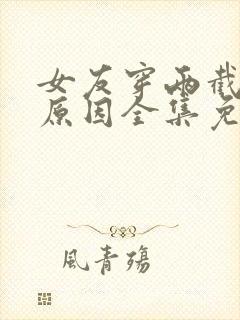 女友穿两截
原因全集免
風青殤